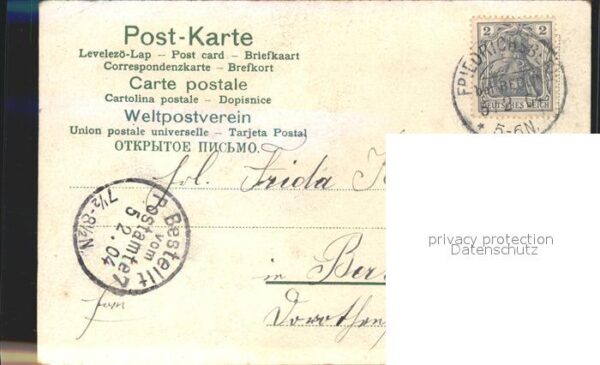 Post-Karte
Levelezö-Lap – Post card – Briefkaart
Correspondenzkarte – Brefkort
Carte postale
Cartolina postale – Dopisnice
Weltpostverein
Union postale universelle – Tarjeta Postal
ОТКРЫТОЕ ПИСЬМО.
2 2
DEUTSCHES REICH
5-6N.
Frida
in Ber
Bestellt
vom
Postamte 7
5 2.04
7½-8½N.
privacy protection
Datenschutz